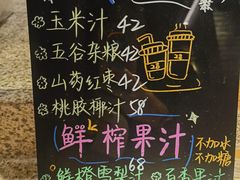 玉米汁 42
五谷杂粮 42
山药红枣 42
桃胶椰汁 58
鲜榨果汁
不加冰
不加糖
68
鲜橙雪梨汁 百香果汁